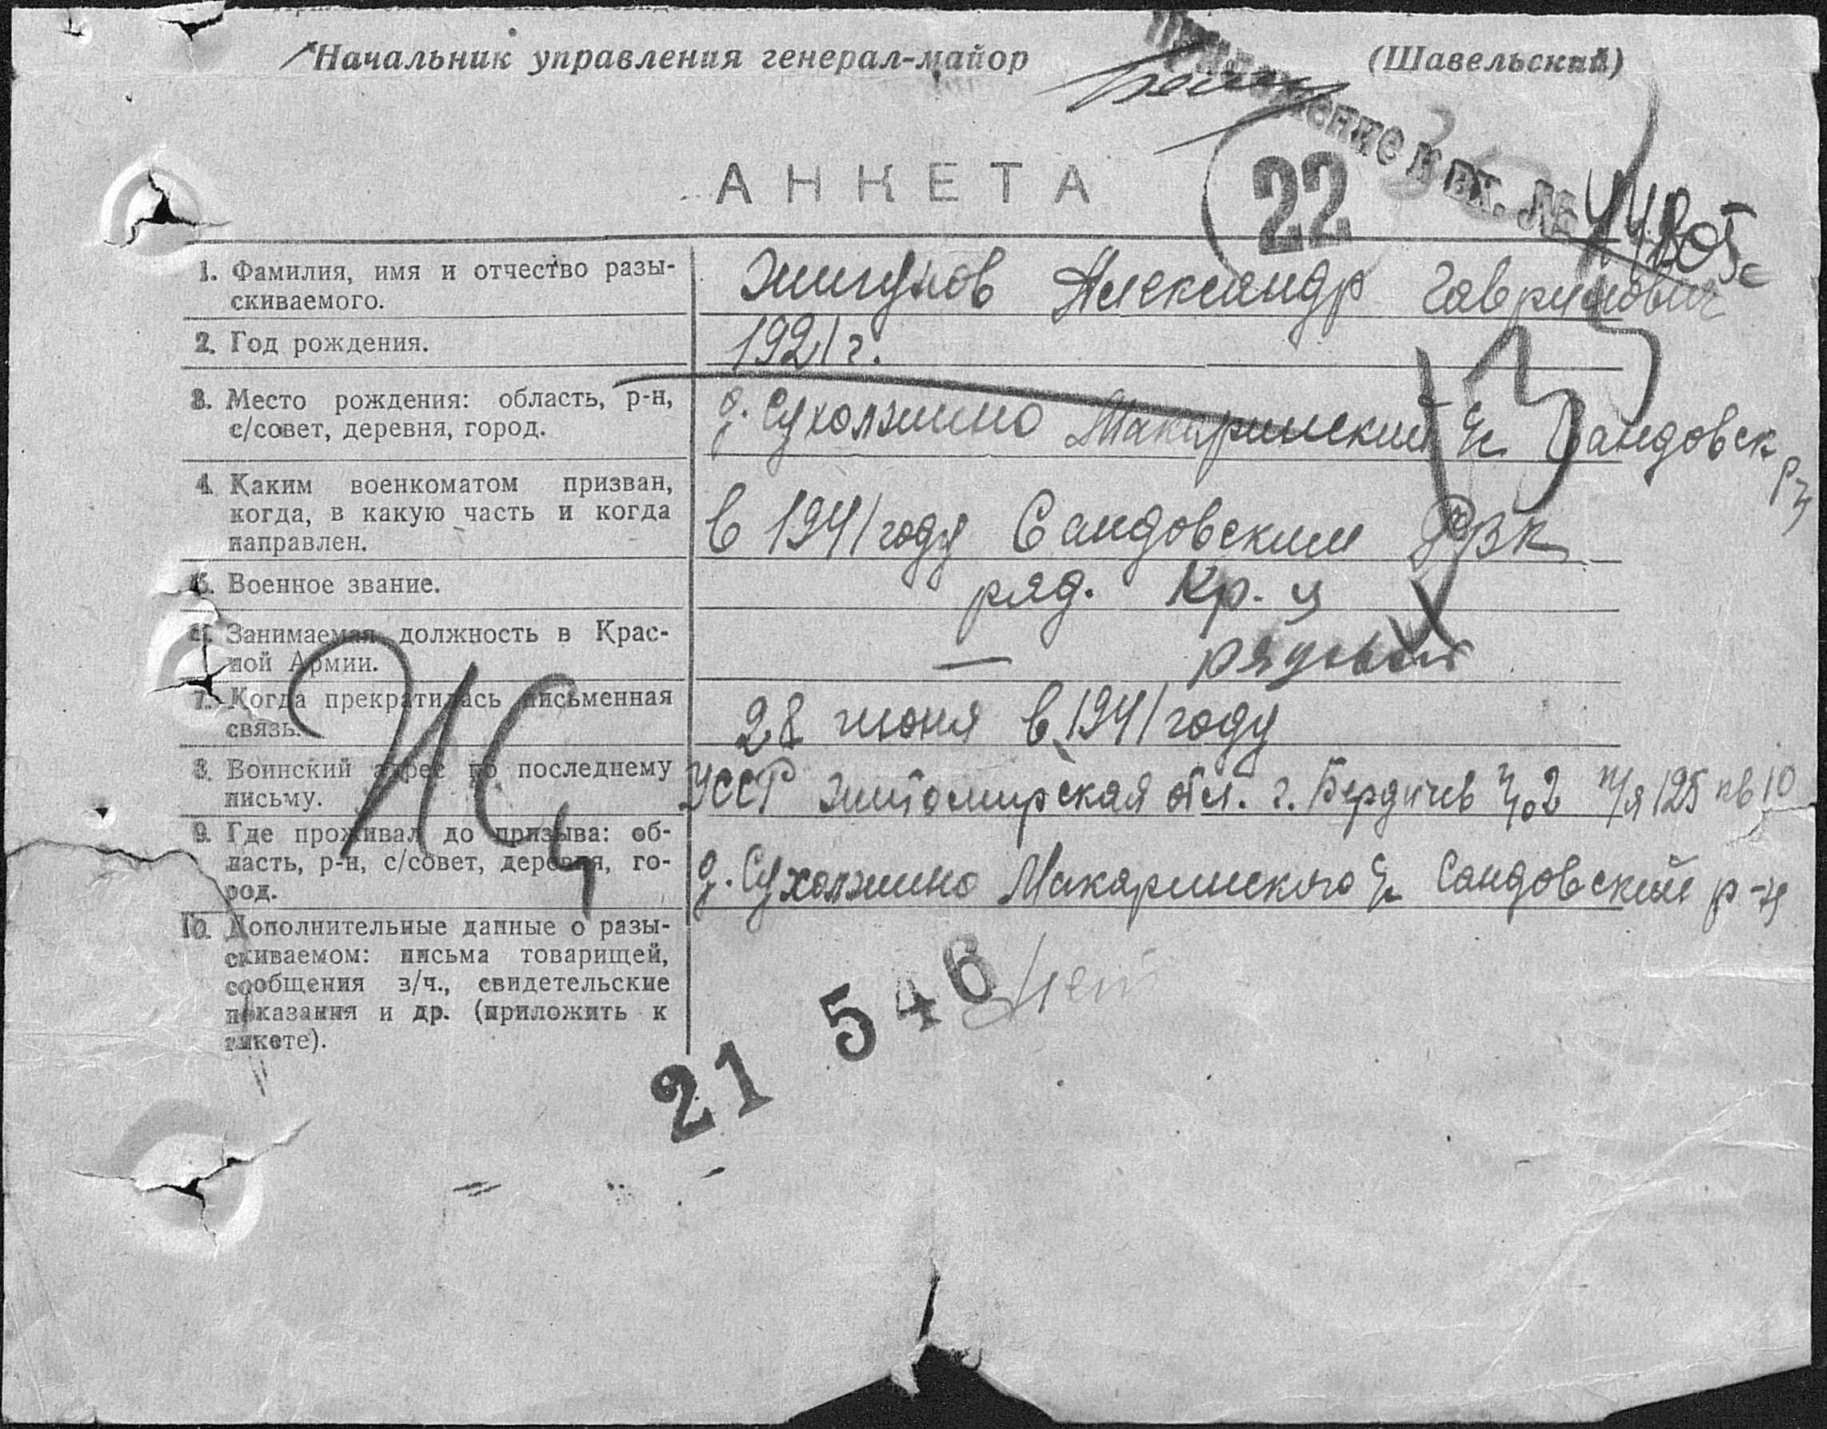 Начальник управления генерал-майор (Шавельский)
Приложение к вх. №
22
АНКЕТА
1. Фамилия, имя и отчество разы-
скиваемого.
Жигунов Александр Гаврилович
2. Год рождения.
1921 г.
3. Место рождения: область, р-н,
с/совет, деревня, город.
д. Сухолжино Макаринский с/с Сандовск р-н
4. Каким военкоматом призван,
когда, в какую часть и когда
направлен.
в 1941 году Сандовским РВК
5. Военное звание.
ряд. Кр-ц
6. Занимаемая должность в Крас-
ной Армии.
— рядовой
7. Когда прекратилась письменная
связь.
28 июня в 1941 году
8. Воинский адрес по последнему
письму.
УССР Житомирская обл. г. Бердичев п/я 125
9. Где проживал до призыва: об-
ласть, р-н, с/совет, деревня, го-
род.
д. Сухолжино Макаринского с/с Сандовский р-н
10. Дополнительные данные о разы-
скиваемом: письма товарищей,
сообщения з/ч., свидетельские
показания и др. (приложить к
анкете).
нет
21 546